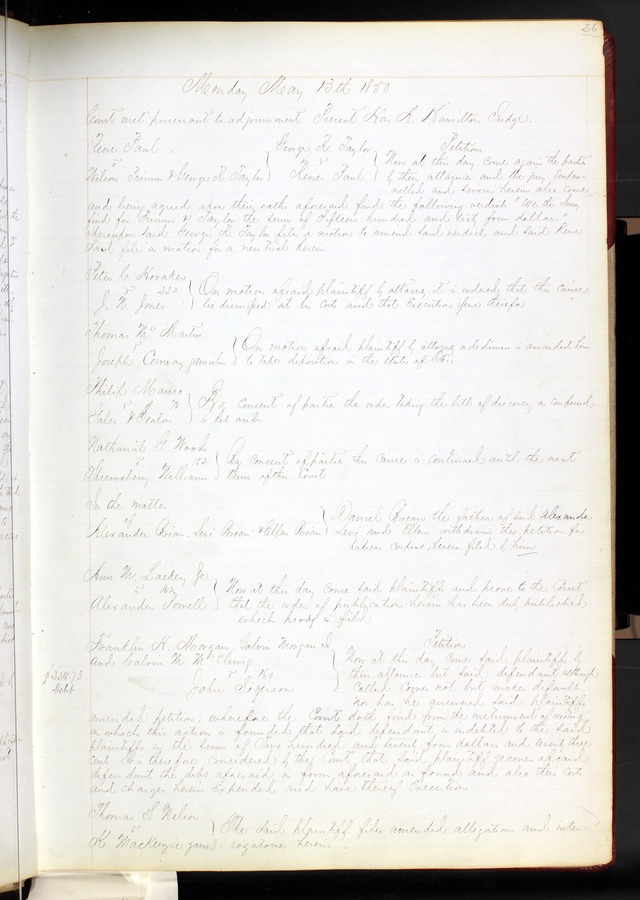 26
Monday May 13th 1850
Court met pursuant to adjournment Present Hon A. Hamilton Judge.
Rene Paul George R Taylor Petition
vs vs Now at this day come again the parties
Wilson Primm & George R Taylor Rene Paul by their attornies and the jury
and sworn herein also come
and being agreed upon their oaths aforesaid find the following verdict "We the Jury
find for Primm & Taylor the sum of Fifteen hundred and four dollars"
Whereupon said George R Taylor files a motion to amend said verdict, and said Rene
Paul files a motion for a new trial herein
Peter C
vs 232 On motion of said plaintiff by attorney it is ordered that this cause
J. N. Jones be dismissed at his costs and that Execution issue therefor
Thomas Mc Martin
vs On motion of said plaintiff by attorney a dedimus is awarded him
Joseph Conway to take deposition in the state of
Philip Mauro
vs By consent of parties the order taking the bill of discovery as confessed
Gales & Seaton is set aside
Nathaniel L Wood
vs 152 By consent of parties this cause is continued until the next
Shrewsbury Williams term of this Court
In the matter
of Daniel Brian the father of said Alexander
Alexander Brian, Levi Brian & Ellen Brian Levi and Ellen withdraws his petition for
habeas corpus herein filed by him
Ann M. Lackey Jr
vs Now at this day come said plaintiffs and prove to the Court
Alexander Powell that the order of publication herein has been duly published
which proof is filed
Franklin H. Morgan, Calvin Morgan Jr Petition
and Calvin M. McClung Now at this day come said plaintiffs by
$224.73 vs 160 their attornies but said defendant although
Debt John Sigerson called comes not but makes default
nor has he answered said plaintiffs
amended petition, wherefore the Court doth find from the instrument of writing
on which this action is founded that said defendant is indebted to the said
plaintiffs in the sum of Two hundred and twenty four dollars and seventy three
cents It is therefore considered by the Court that said plaintiffs recover of said
defendant the debt aforesaid in form aforesaid as found and also their costs
and charges herein Expended and have thereof Execution
Thomas S Nelson
vs The said plaintiff files amended allegations and inter-
K Mackenzie garn. rogatories herein